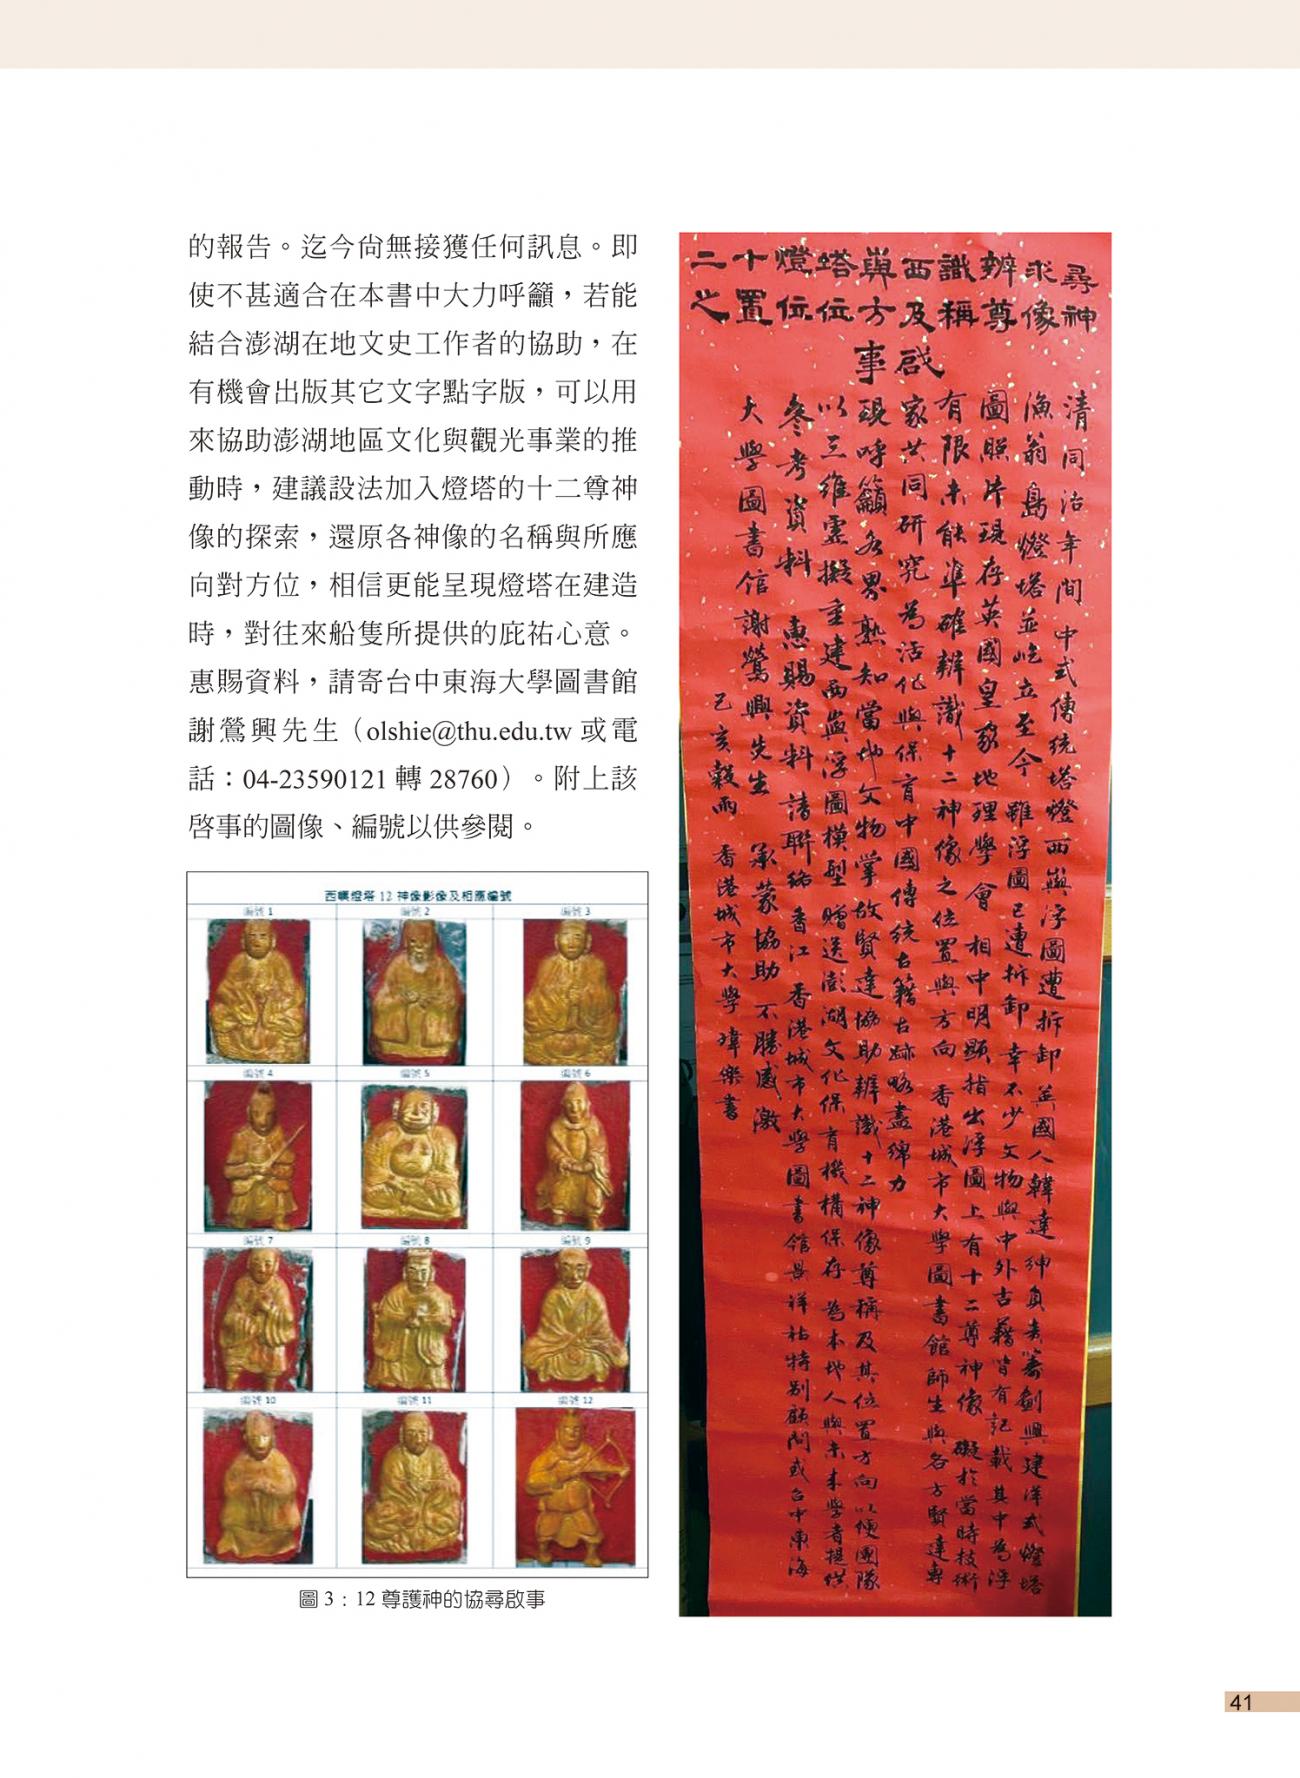 的報告。迄今尚無接獲任何訊息。即
使不甚適合在本書中大力呼籲，若能
結合澎湖在地文史工作者的協助，在
有機會出版其它文字點字版，可以用
來協助澎湖地區文化與觀光事業的推
動時，建議設法加入燈塔的十二尊神
像的探索，還原各神像的名稱與所應
向對方位，相信更能呈現燈塔在建造
時，對往來船隻所提供的庇祐心意。
惠賜資料，請寄台中東海大學圖書館
謝鶯興先生（olshie@thu.edu.tw 或電
話：04-23590121 轉 28760）。附上該
啓事的圖像、編號以供參閱。
西嶼燈塔 12 神像影像及相應編號
編號 1
編號 2
編號 3
編號 4
編號 5
編號 6
編號 7
編號 8
編號 9
編號 10
編號 11
編號 12
圖 3：12 尊護神的協尋啟事
尋求辨識西與塔燈十二
神像尊稱及方位位置之
啟事
清同治年間 中式傳統塔燈西嶼浮圖遭拆卸 英國人韓達紳負責籌劃興建洋式燈塔
漁翁島燈塔並屹立至今 雖浮圖已遭拆卸 幸不少文物與中外古籍皆有記載 其中為浮
圖照片現存英國皇家地理學會 相中明顯指出浮圖上有十二尊神像 礙於當時技術
有限未能準確辨識十二神像之位置與方向 香港城市大學圖書館師生與各方賢達專
家共同研究為活化與保育中國傳統古籍古跡略盡綿力
現呼籲各界熟知當地文物掌故賢達協助辨識十二神像尊稱及其位置方向以便團隊
以三維虛擬重建西嶼浮圖模型 贈送澎湖文化保育機構保存 為本地人與未來學者提供
參考資料 惠賜資料請聯絡香江 香港城市大學圖書館景祥祜特別顧問或台中東海
大學圖書館謝鶯興先生 承蒙協助 不勝感激
己亥穀雨 香港城市大學 瑋樂書
41